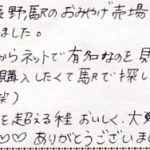 長野駅のおみやげ売場
ました。
からネットで有知なのを見
購入したくて駅で探し
笑)
を超える程おいしく、大
♡♡ ありがとうございま